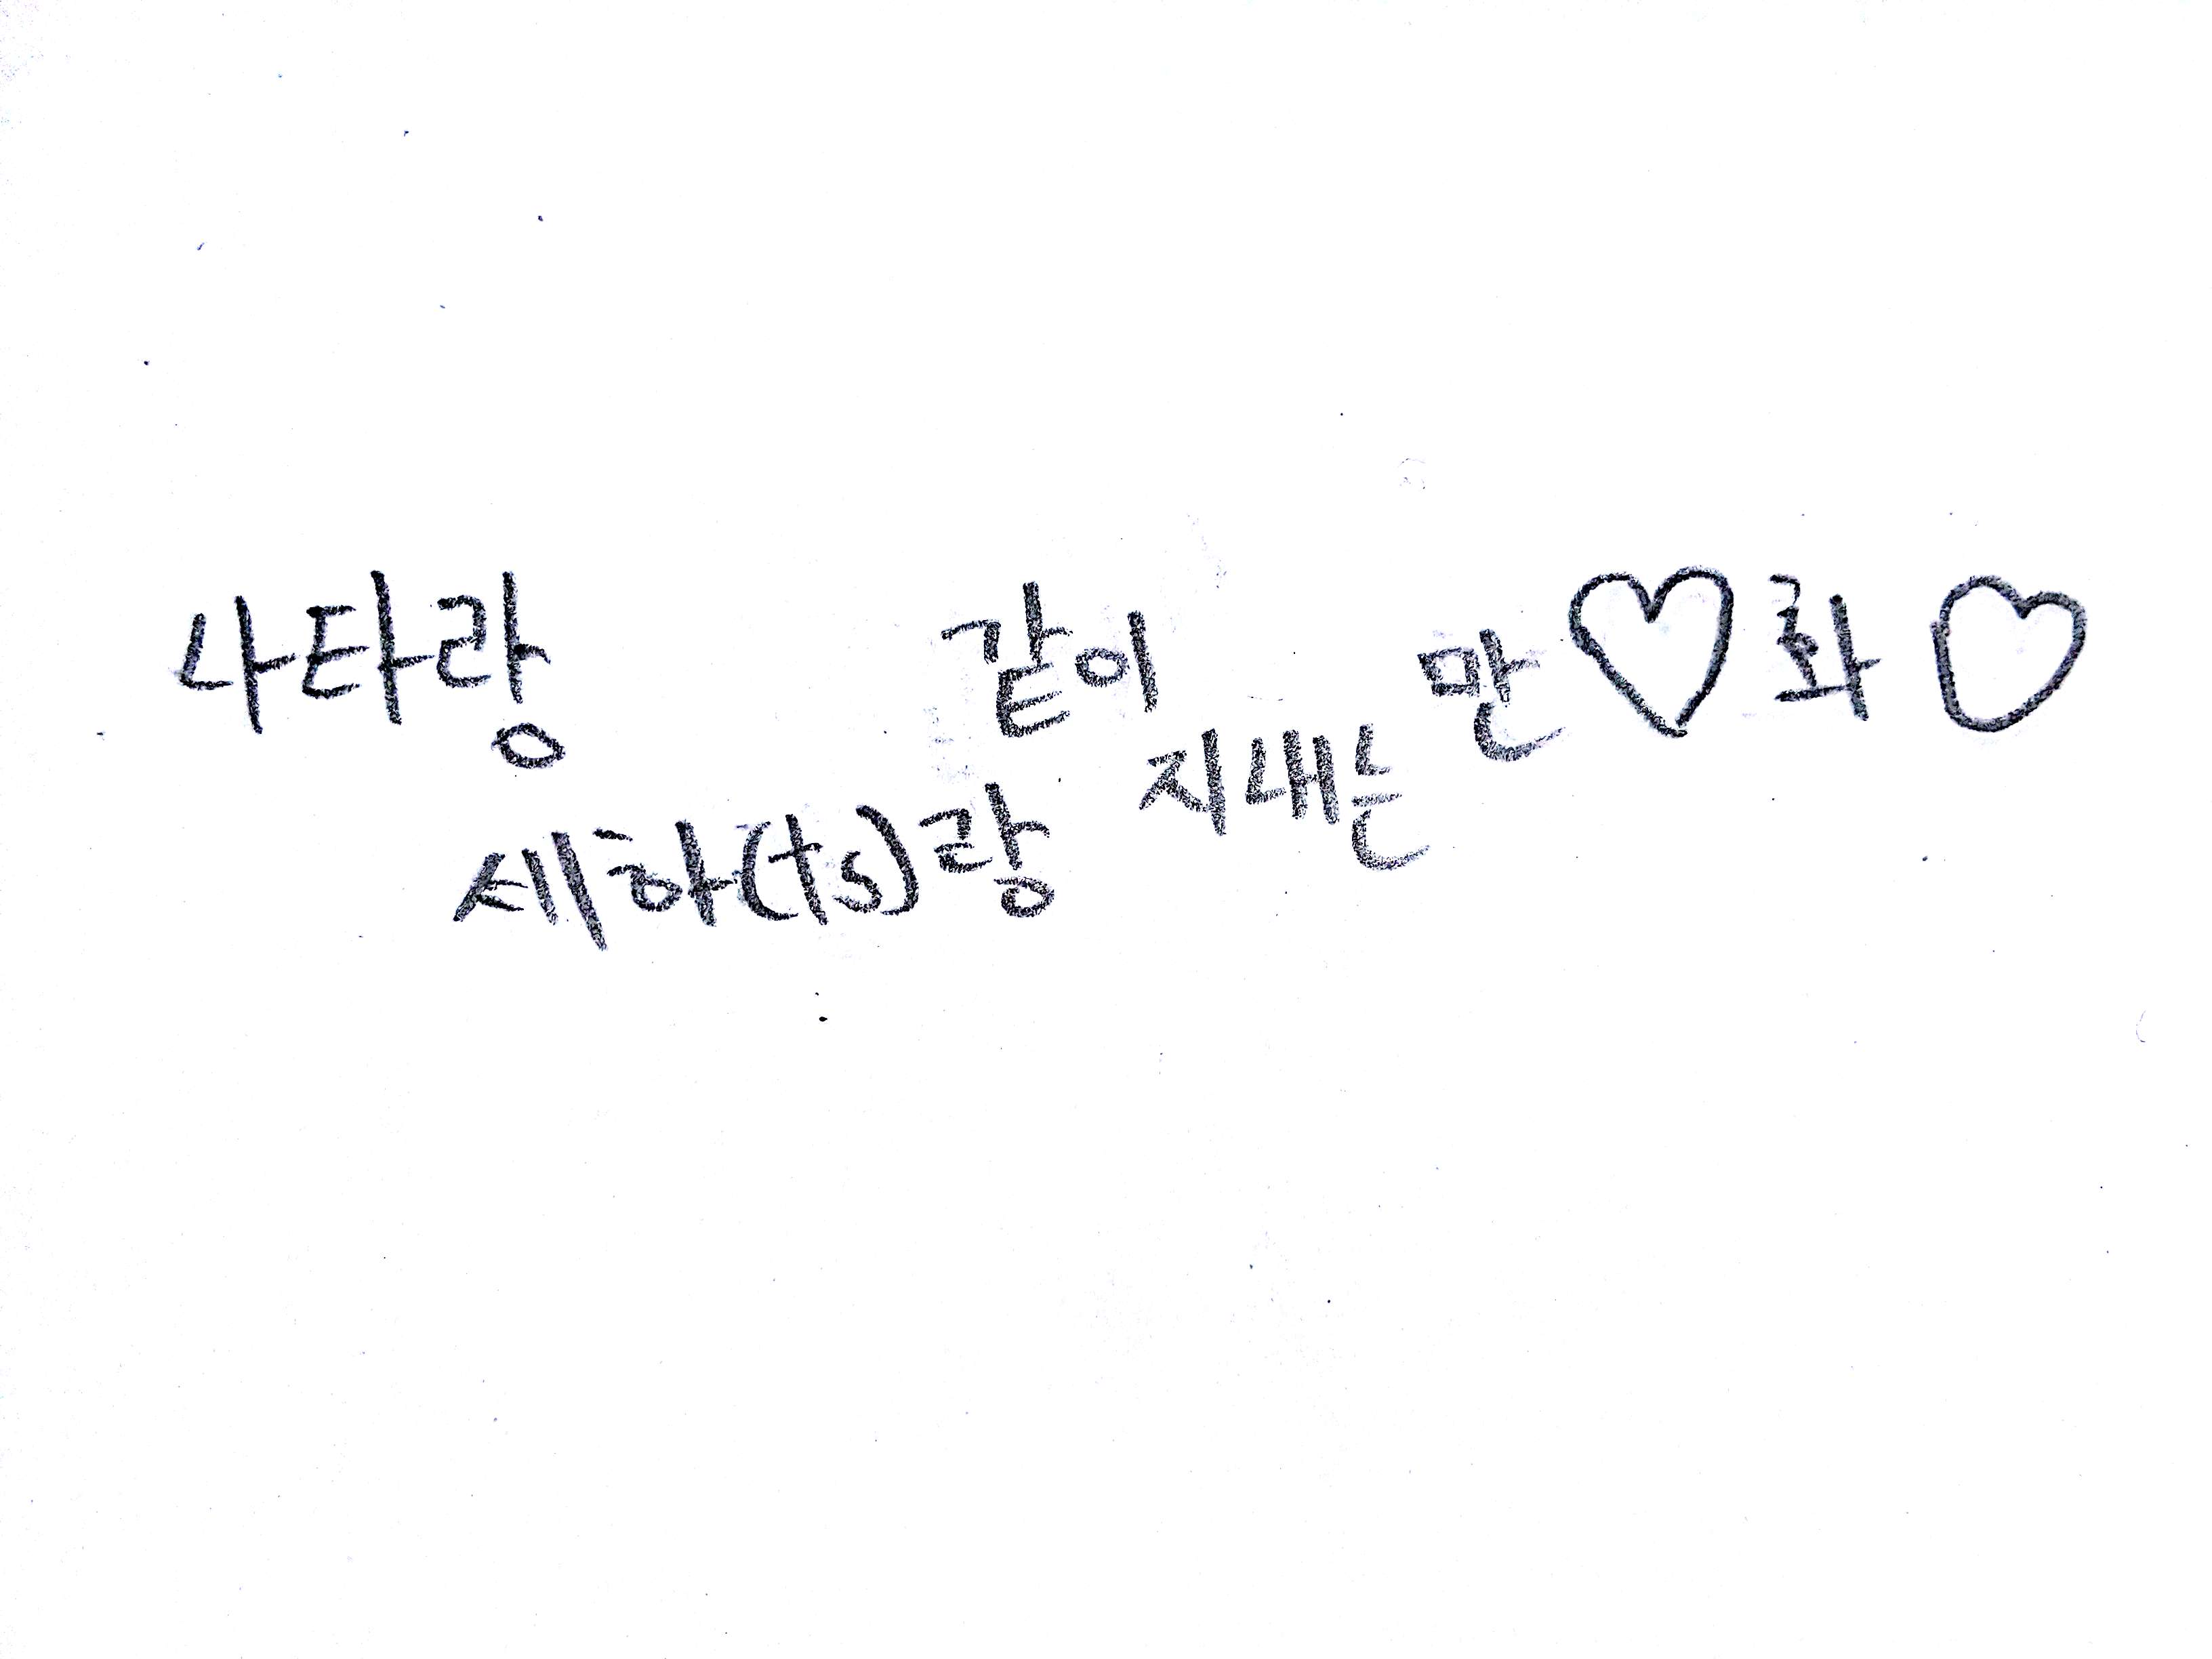 나타랑
세하(ts)랑
같이
지내는
만♡화♡